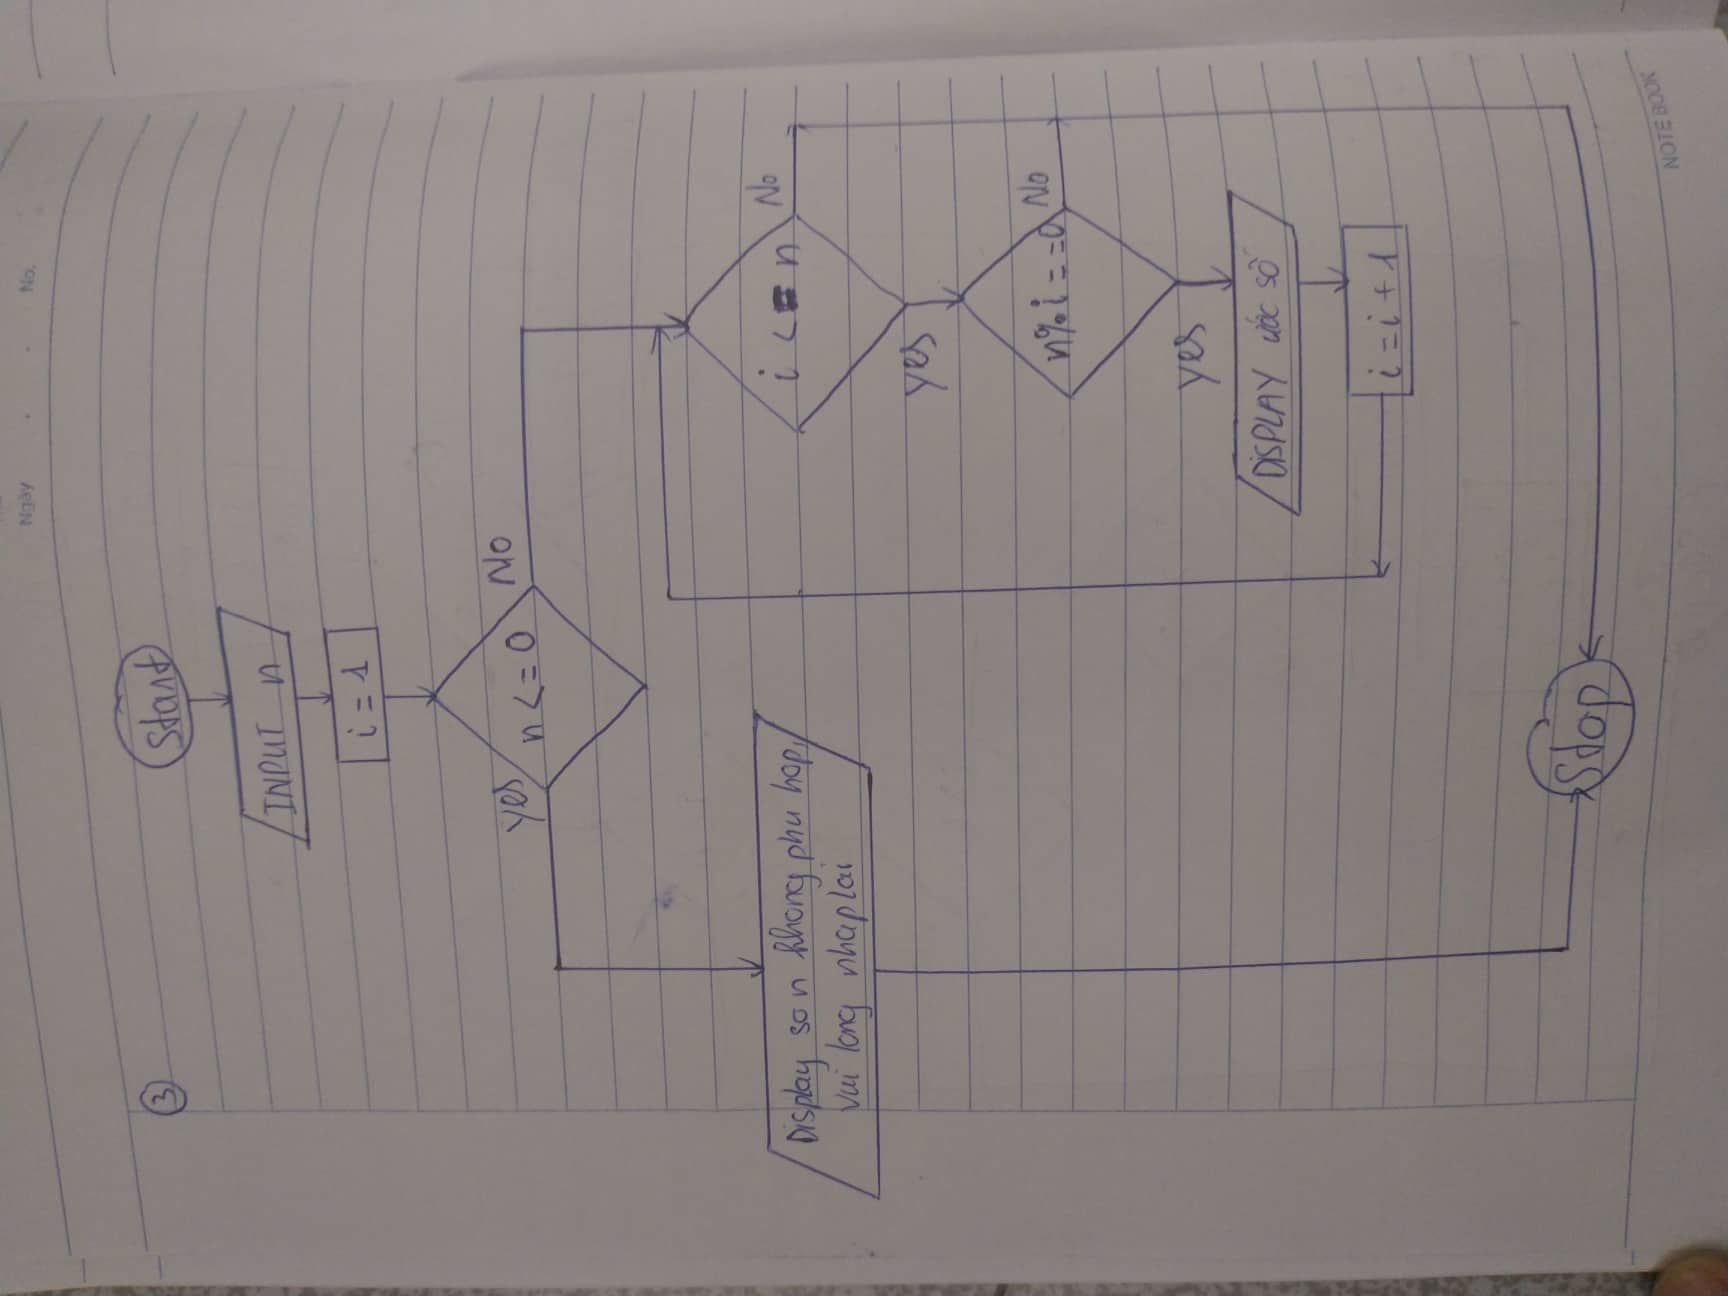 Ngày . . No.
③
Start
INPUT n
i = 1
n <= 0
Yes
No
Display so n khong phu hop,
vui long nhap lai
i <= n
No
Yes
n%i==0
No
Yes
DISPLAY ước số
i = i + 1
Stop
NOTEBOOK